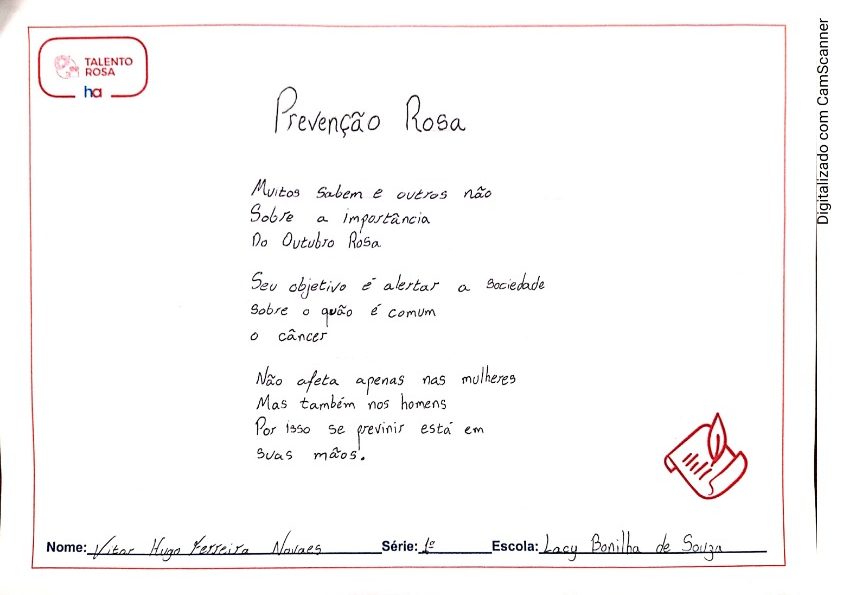 TALENTO
ROSA
ha
Prevenção Rosa
Muitos sabem e outros não
Sobre a importância
Do Outubro Rosa
Seu objetivo é alertar a sociedade
Sobre o quão é comum
o câncer
Não afeta apenas nas mulheres
Mas também nos homens
Por isso se previnir está em
suas mãos.
Nome: Vitor Hugo Ferreira Novaes Série: 1º Escola: Lacy Bonilha de Souza
Digitalizado com CamScanner